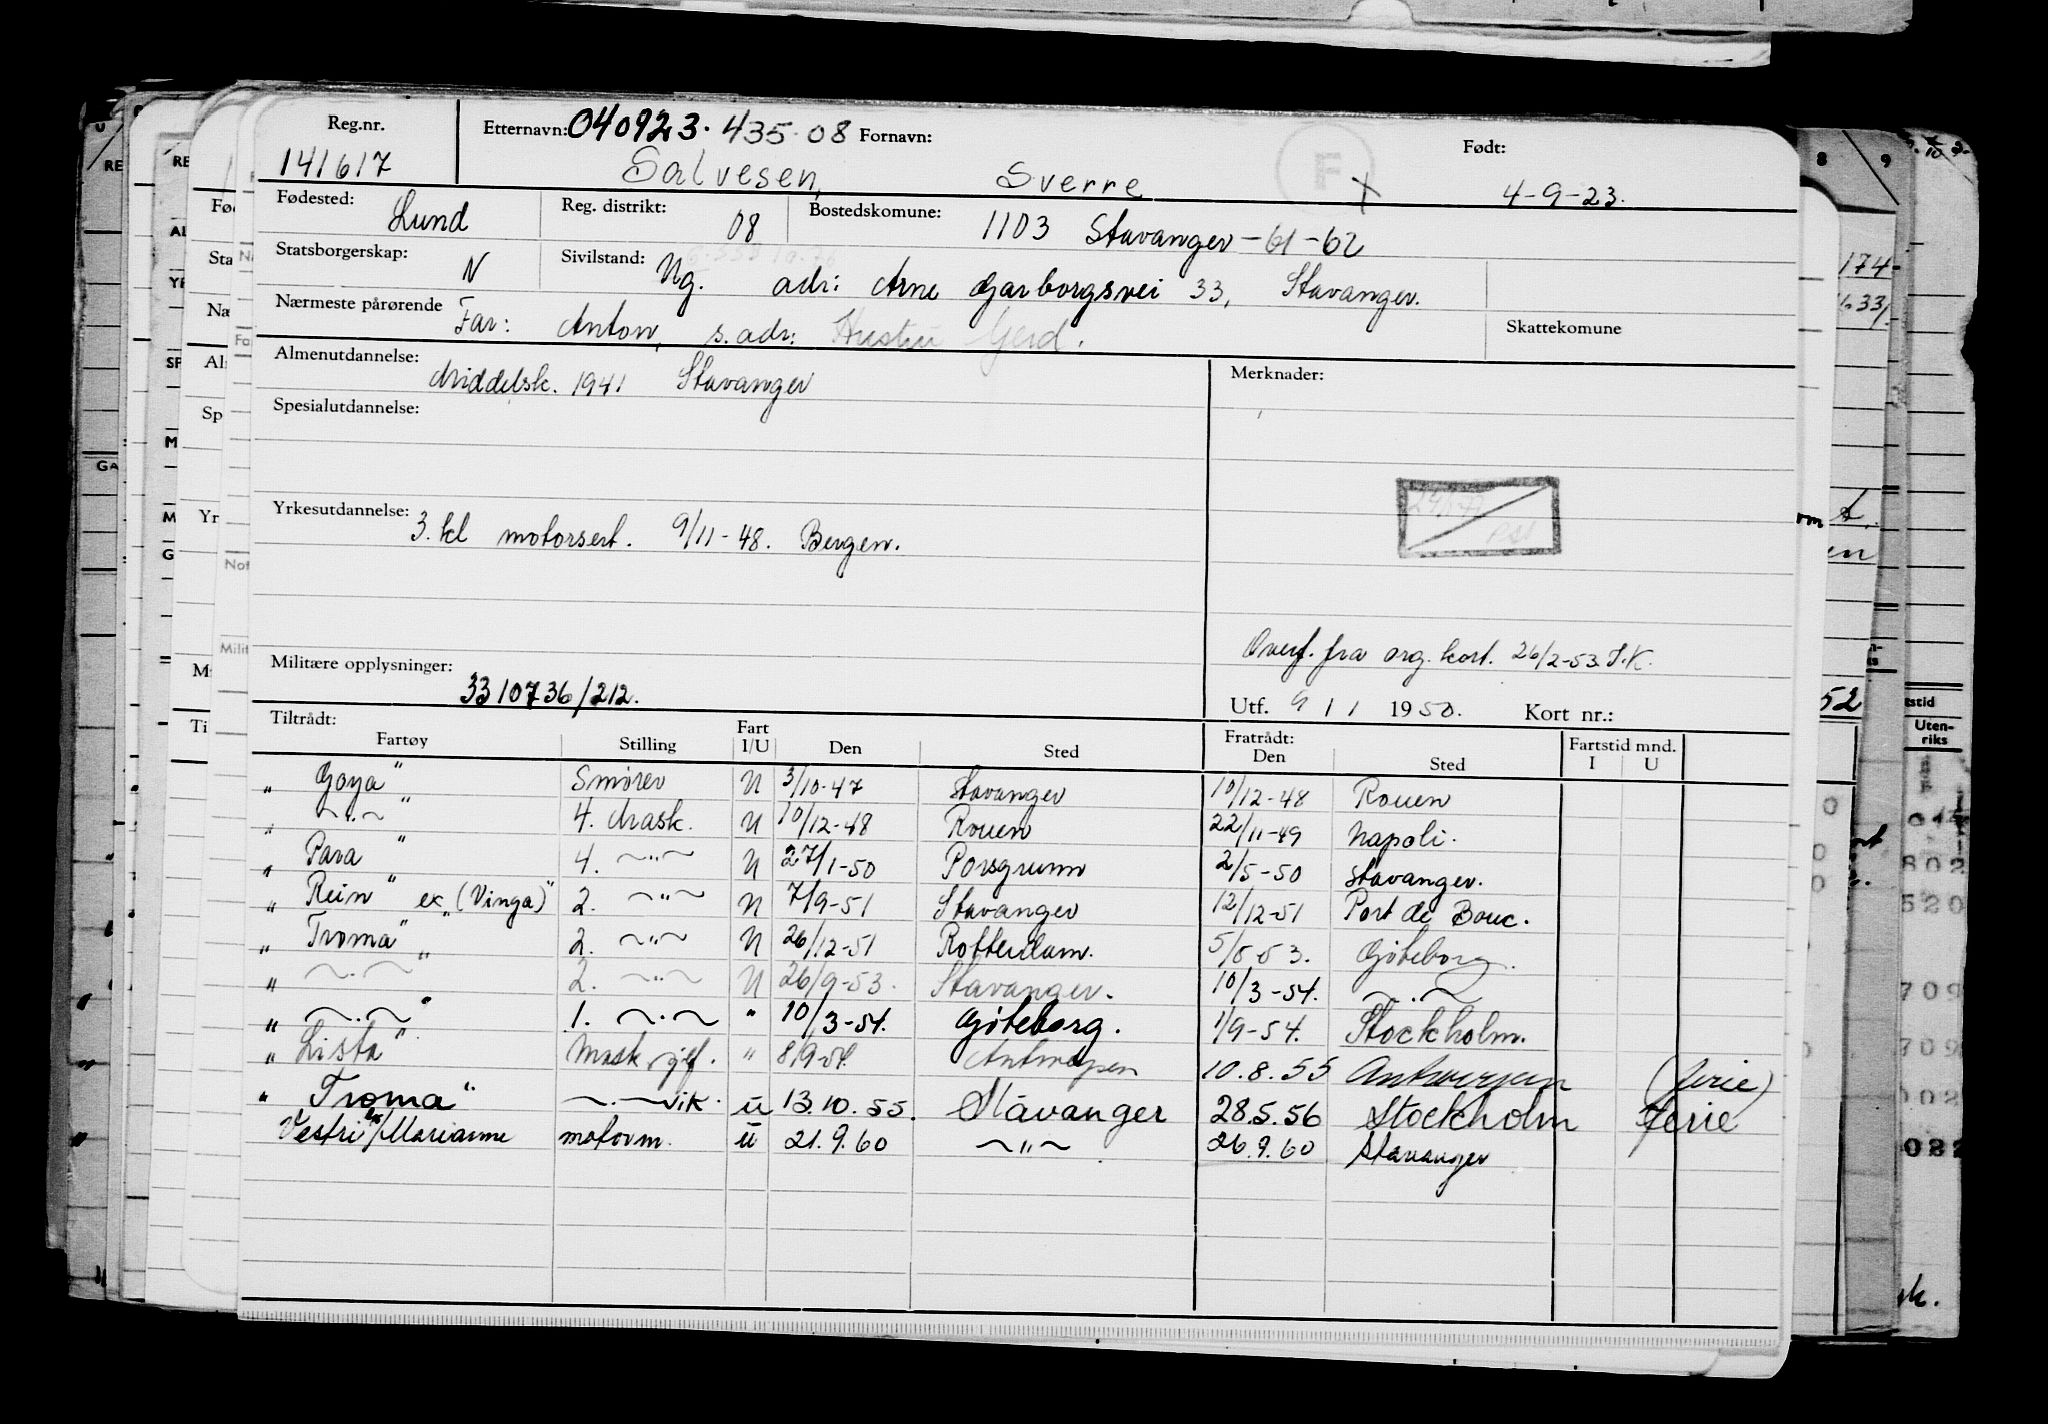 Reg.nr. Etternavn: 040923. 435.08 Fornavn: F Født:
141617 Salvesen, Sverre x 4-9-23.
Fødested: Lund Reg. distrikt: 08 Bostedskomune: 1103 Stavanger -61-62
Statsborgerskap: N Sivilstand: Ug. adr: Arne Garborgsvei 33, Stavanger.
Nærmeste pårørende Far: Anton, s. adr: Hustru Gerd. Skattekomune
Almenutdannelse: Middelsk. 1941 Stavanger Merknader:
Spesialutdannelse:
Yrkesutdannelse: 3. kl motorsert. 9/11-48. Bergen.
Overf. fra org. kort. 26/2-53 J.K.
Militære opplysninger: 3310736/212.
Utf. 9 / 1 1950. Kort nr.:
Tiltrådt: Fratrådt: Fartstid mnd.
Fartøy Stilling Fart I/U Den Sted Den Sted I U
" Goya " Smører U 3/10-47 Stavanger 10/12-48 Rouen
" ~.~ " 4. Mask. U 10/12-48 Rouen 22/11-49 Napoli.
" Para " 4. ~"~ U 27/1-50 Porsgrunn 2/5-50 Stavanger.
" Rein " ex (Vinga)" 2. ~"~ U 7/9-51 Stavanger 12/12-51 Port de Bouc.
" Troma " 2. ~"~ U 26/12-51 Rotterdam. Göteborg.
" ~.~ " 2. ~"~ U 26/9-53. Stavanger. 10/3-54. ~.~
" ~.~ " 1. ~.~ " 10/3-54. Göteborg. 1/9-54. Stockholm.
" Lista " Mask sjef. " 8/9-54. Antwerpen 10.8.55 Antwerpen (ferie)
" Troma " ~.~ vik. u 13.10.55. Stavanger 28.5.56 Stockholm Ferie
Vestri ex/Marianne motorm. u 21.9.60 ~"~ 26.9.60 Stavanger